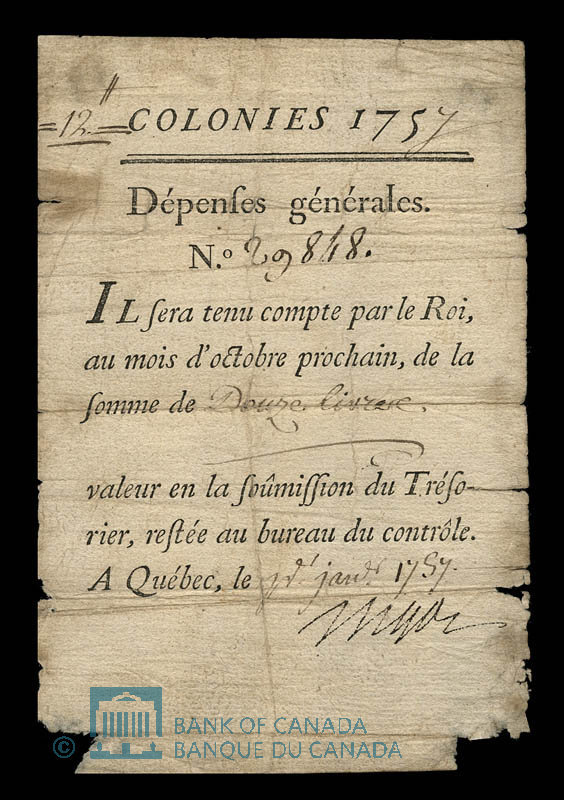 =12"= COLONIES 1757
Dépenſes générales.
N.º 29848.
IL ſera tenu compte par le Roi,
au mois d'octobre prochain, de la
ſomme de Douze livres.
valeur en la ſoûmiſſion du Tréſo-
rier, reſtée au bureau du contrôle.
A Québec, le janv.r 1757.
BANK OF CANADA
© BANQUE DU CANADA